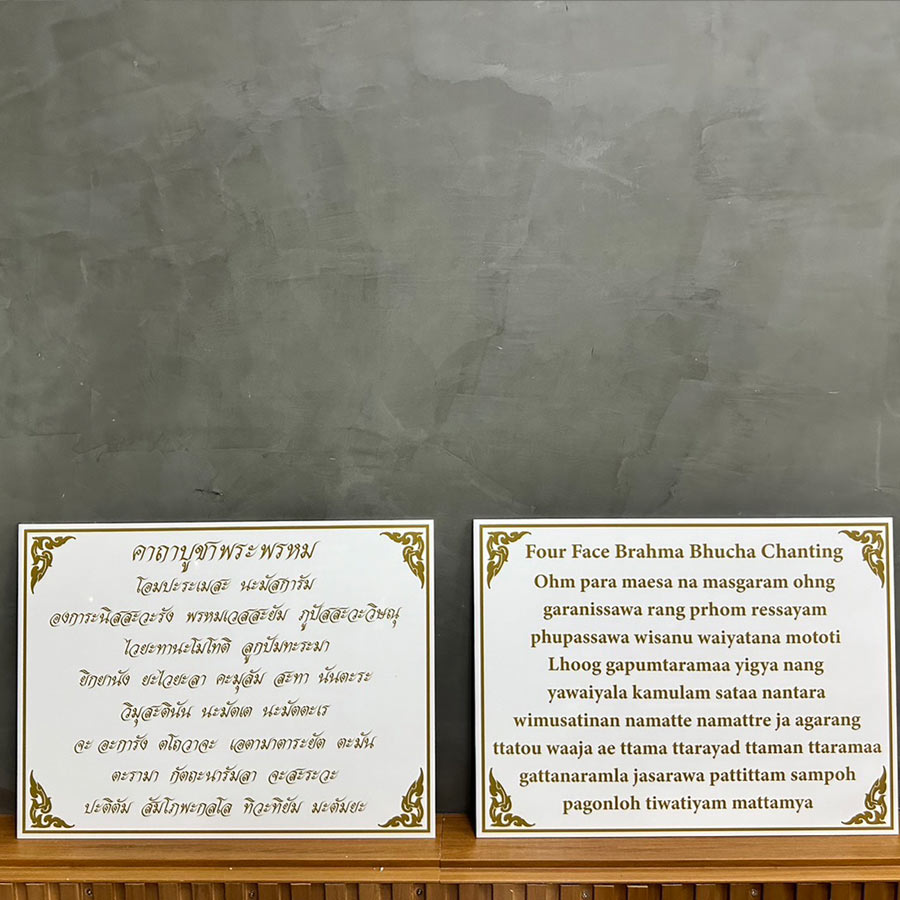 คาถาบูชาพระพรหม
โอมปะระเมสะ นะมัสการัม
องการะนิสสะวะรัง พรหมเวสสะยัม ภูปัสสะวะวิษณุ
ไวยะทานะโมโทติ ลูกปัมทะระมา
ยิกยานัง ยะไวยะลา คะมุลัม สะทา นันตะระ
วิมุสะตินัน นะมัตเต นะมัตตะเร
จะ อะการัง ตโถวาจะ เอตามาตาระยัต ตะมัน
ตะรามา กัตถะนารัมลา จะสะระวะ
ปะติตัม สัมโภพะกลโล ทิวะทิยัม มะตัมยะ
Four Face Brahma Bhucha Chanting
Ohm para maesa na masgaram ohng
garanissawa rang prhom ressayam
phupassawa wisanu waiyatana mototi
Lhoog gapumtaramaa yigya nang
yawaiyala kamulam sataa nantara
wimusatinan namatte namattre ja agarang
ttatou waaja ae ttama ttarayad ttaman ttaramaa
gattanaramla jasarawa pattittam sampoh
pagonloh tiwatiyam mattamya